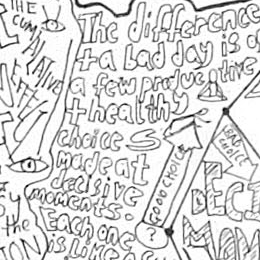 THE
CUM
ULATIVE
EFFECT
The difference
+ a bad day is o
a few productive
+ healthy
choices
made at
decisive
moments.
Each one
is like a
GOOD CHOICE
?
BAD CHOICE
DECI
MOM
the
ION